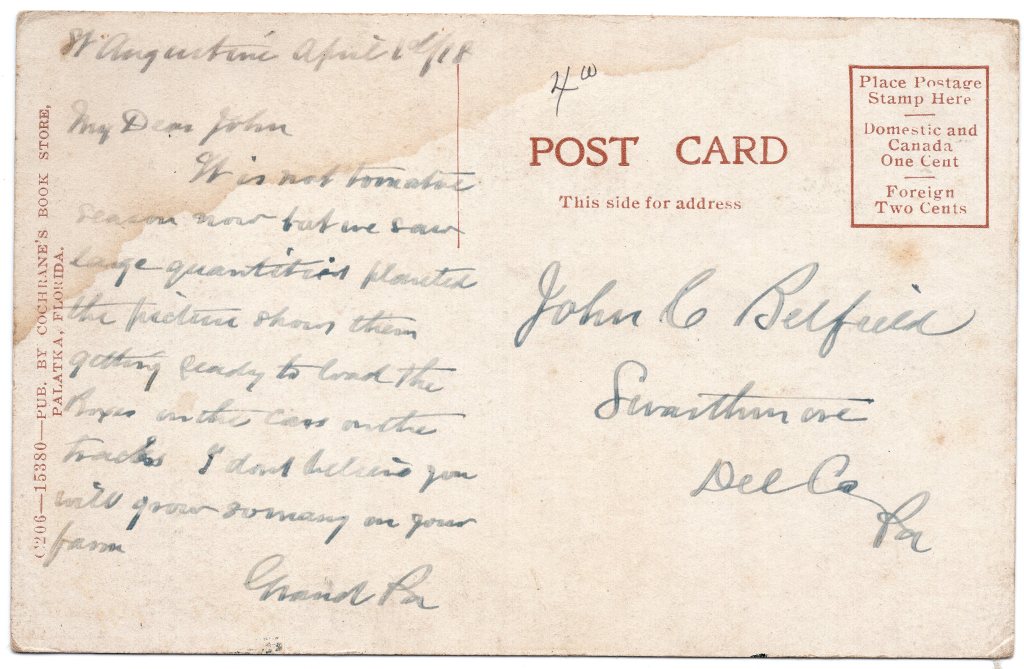 St Augustine April 1st/18
My Dear John
It is not tomatoe
season now but we saw
large quantities planted
the picture shows them
getting ready to load the
Boxes in the cars on the
tracks I dont believe you
will grow so many on your
farm
Grand Pa
C206—15380—PUB. BY COCHRANE'S BOOK STORE,
PALATKA, FLORIDA.
POST CARD
This side for address
Place Postage
Stamp Here
Domestic and
Canada
One Cent
Foreign
Two Cents
John C Belfield
Swarthmore
Del Co
Pa